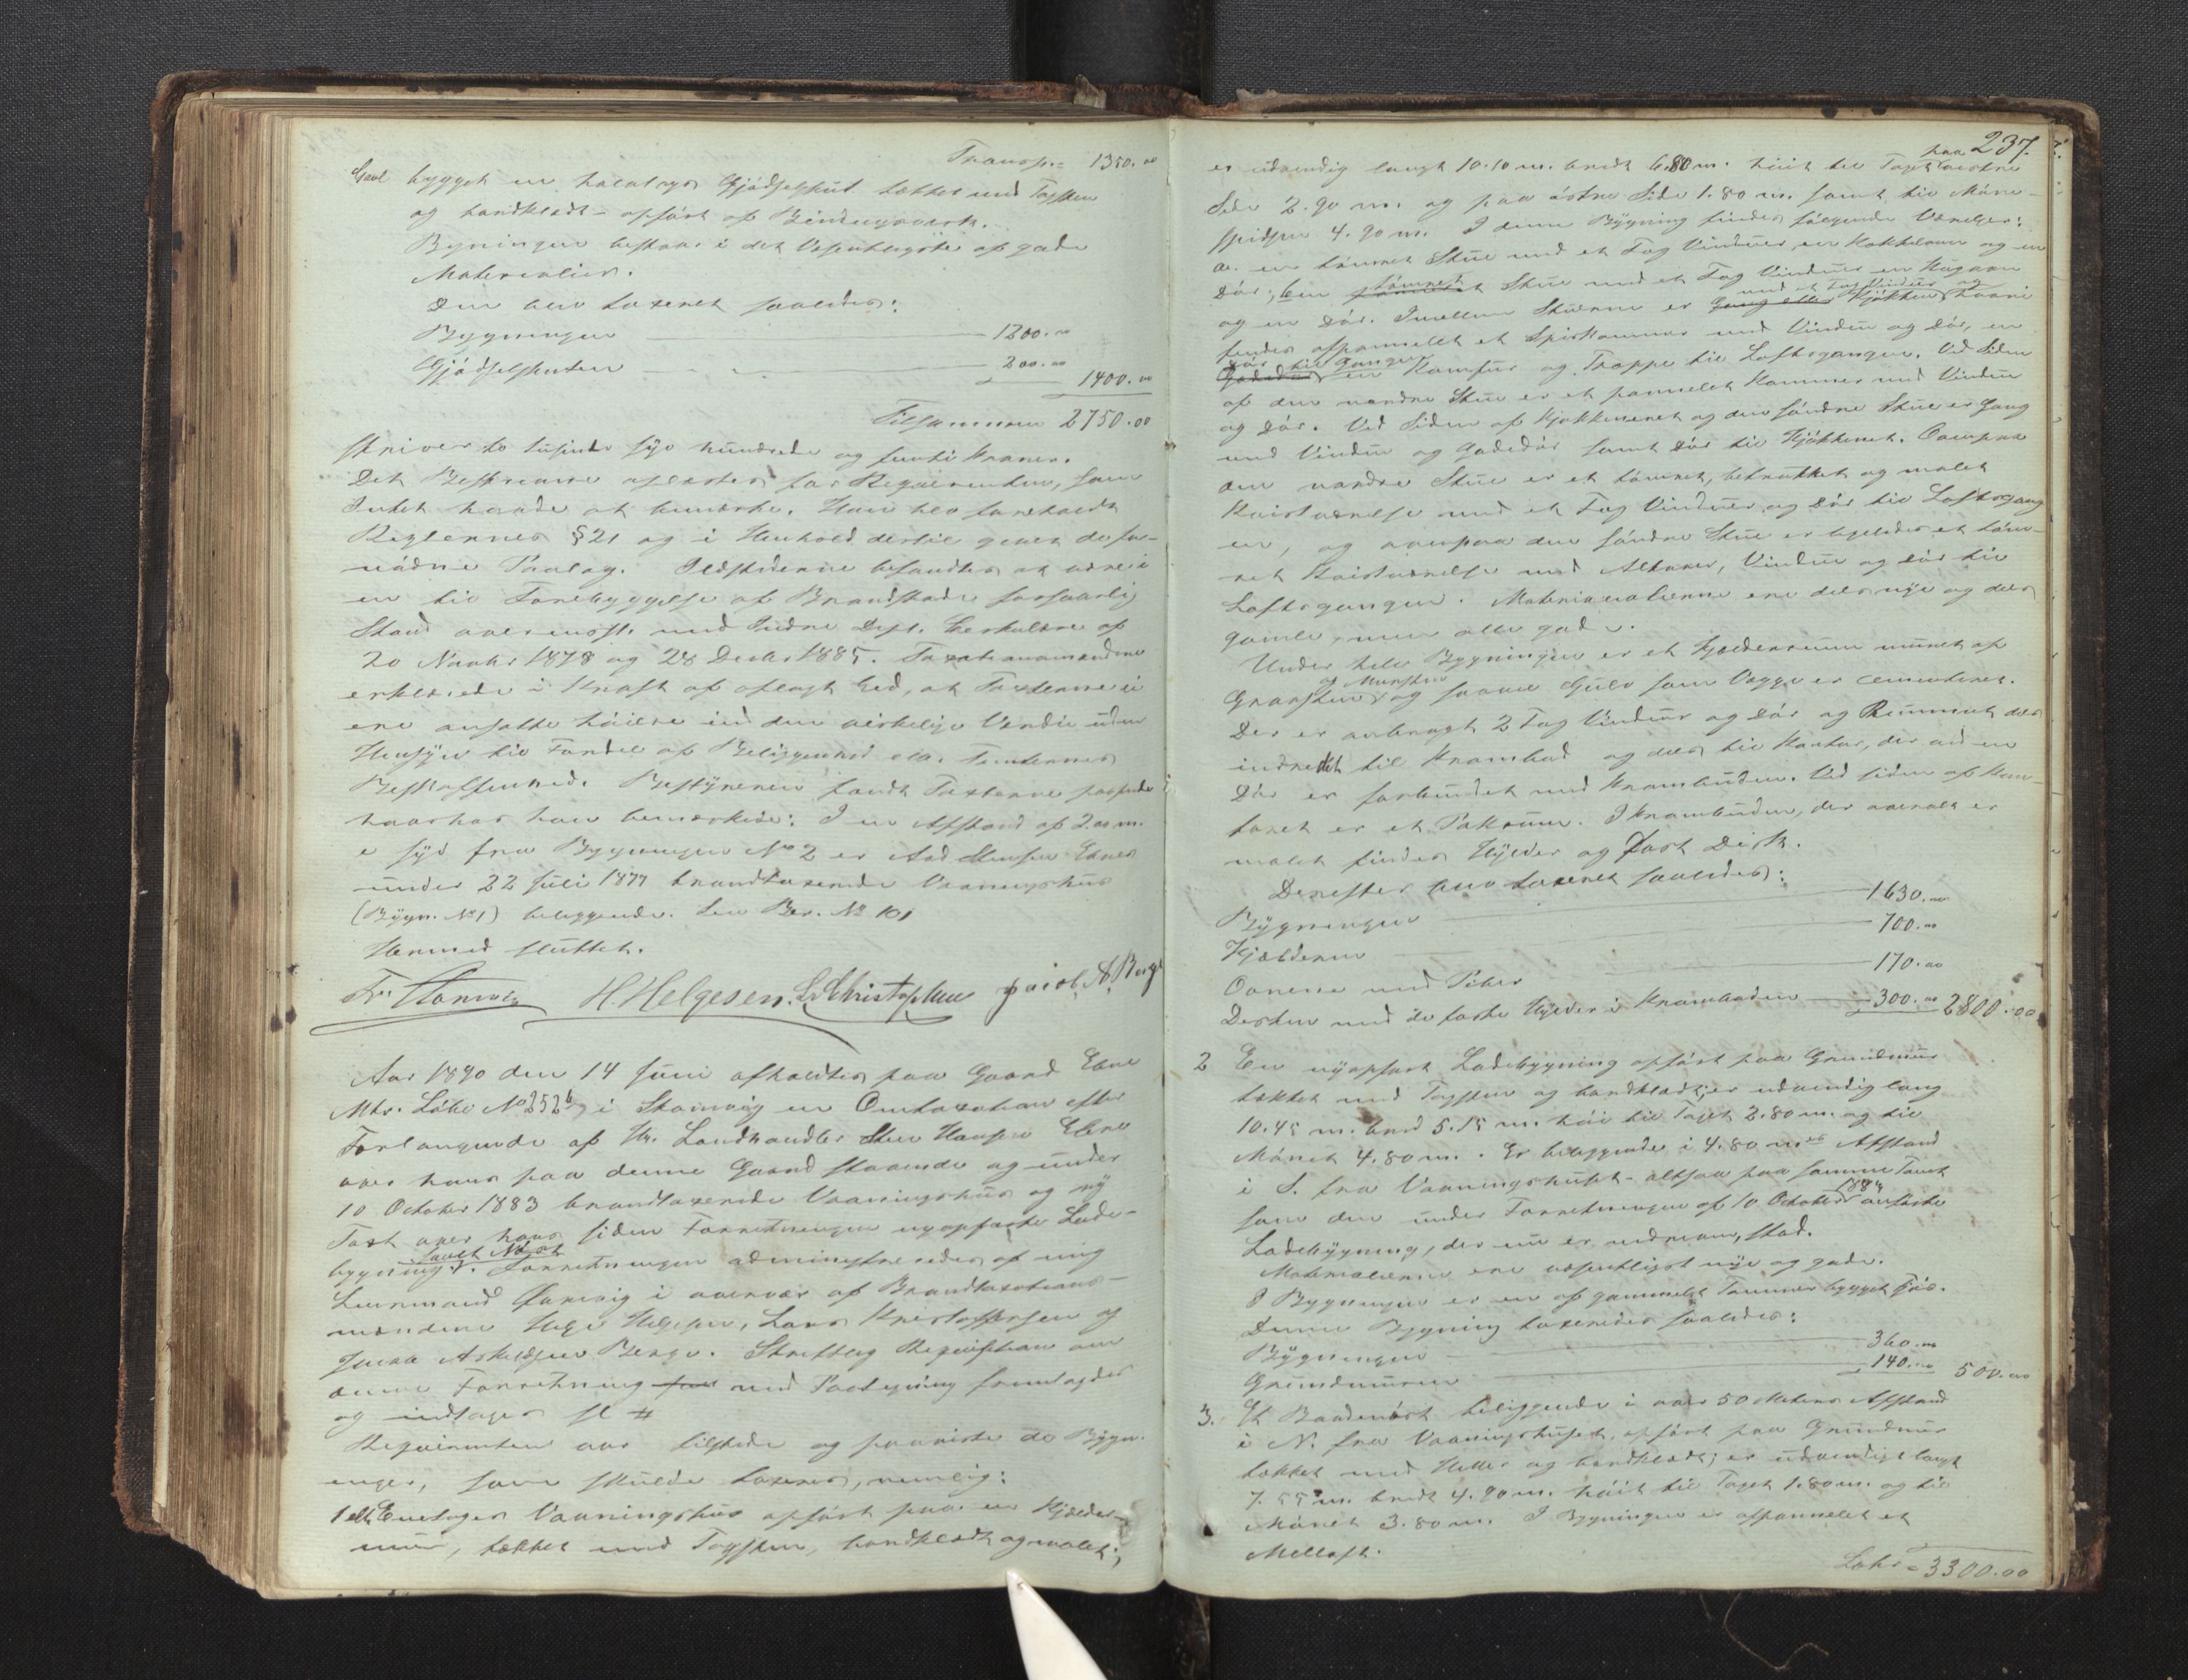 Transp. 1350.00
Gavl bygget en halvtags Gjødselskut tækket med Tagsten
og bordklædt - opført af Bindingsværk.
Bygningen bestaar i det Væsentligste af gode
Materialier.
Den blev taxeret saaledes:
Bygningen 1200.00
Gjødselskuten 200.00 1400.00
Tilsammen 2750.00
skriver to tusinde syv hundrede og femti Kroner.
Det Beskrevne oplæstes for Reqvirenten, som
Intet havde at bemærke. Han blev foreholdt
Reglernes § 21 og i Henhold dertil givet de for-
nødne Paalæg. Ildstederne befandtes at være i
en til Forebyggelse af Brandskade forsvarlig
Stand overensst. med Indre Dept. Cirkulære af
20 Novbr 1878 og 28 Decbr 1885. Taxationsmændene
erklærede i Kraft af aflagt Ed, at Taxterne ei
ere ansatte høiere end den virkelige Værdi uden
Hensyn til Fordel af Beliggenhed ell. Tomternes
Beskaffenhed. Bestyreren fandt Taxterne passende
hvorhos han bemærkede: I en Afstand af 2.00 m.
i syd fra Bygningen No 2 er Sten Hansen Ebnes
under 22 Juli 1877 brandtaxerede Vaaningshus
(Bygn. No 1) beliggende. Lev. Ber. No 101
Hermed sluttet.
H. Helgesen. L. Christophersen Jacob A Berge
Aar 1890 den 14 Juni afholdtes paa Gaard Ebne
Mtr. Løbe No 252 b i Skonevig en Omtaxation efter
Forlangende af Hr. Landhandler Sten Hansen Ebne
over hans paa denne Gaard staaende og under
10 October 1883 brandtaxerede Vaaningshus og ny
Taxt over hans siden Forretningen nyopførte Lade-
bygning samt Nøst. Forretningen administreredes af mig
Lensmand i overvær af Brandtaxations-
mændene Helge Helgesen, Lars Kristoffersen og
Jacob Askildsen Berge. Skriftlig Reqvisition om
denne Forretning med Paategning fremlagdes
og indtages sl #
Reqvirenten var tilstede og paaviste de Bygn-
inger, som skulde taxeres, nemlig:
1 elt Enetages Vaaningshus opført paa en Kjælder-
mur, tækket med Tagsten, bordklædt og malet;
237.
er udvendig langt 10.10 m. bredt 6.80 m. høit til Taget paa vestre
Side 2.90 m. og paa østre Side 1.80 m. samt til Møne-
spidsen 4.90 m. I denne Bygning findes følgende Værelser:
a. en tømret Stue med et Fag Vinduer, en Kakkelovn og en
Dør; b en tømret Stue med et Fag Vinduer en Kogovn
og en Dør. Imellem Stuerne er Gang eller Kjøkken med et Fag Vinduer og hvori
findes afpannellet et Spiskammer med Vindu og Dør, en
Dør til Gangen en Komfur og Trappe til Loftsgangen. Ved Siden
af den nordre Stue er et pannelet Kammer med Vindu
og Dør. Ved Siden af Kjøkkenet og den søndre Stue er Gang
med Vindu og Gadedør samt Dør til Kjøkkenet. Ovenpaa
den nordre Stue er et tømret, betrukket og malet
Kvistværelse med et Fag Vinduer og Dør til Loftsgang
en, og ovenpaa den søndre Stue er ligeledes et tøm-
ret Kvistværelse med Alkover, Vindu og Dør til
Loftsgangen. Materialierne ere dels nye og dels
gamle, men alle gode.
Under hele Bygningen er et Kjælderrum muret af
Graasten af Mursten og saavel Gulv som Vægge er cementeret.
Der er anbragt 2 Fag Vinduer og Dør og Rummet dels
indredet til Krambod og dels til Kontor, der ved en
Dør er forbundet med Kramboden. Ved siden af Kon-
toret er et Pakrum. I Kramboden, der overalt er
malet findes Hylder og fast Disk.
Derefter blev taxeret saaledes:
Bygningen 1630.00
Kjælderen 700.00
Ovnene med Piber 170.00
Disken med de faste Hylder i Kramboden 300.00 2800.00
2 En nyopført Ladebygning opført paa Grundmur
tækket med Tagsten og bordklædt; er udvendig lang
10.45 m. bred 5.15 m. høi til Taget 2.80 m. og til
Mønet 4.80 m. Er beliggende i 4.80 m Afstand
i S. fra Vaaningshuset - altsaa paa samme Tomt
som den under Forretningen af 10 October 1883 anførte
Ladebygning, der nu er nedreven, stod.
Materialierne ere væsentligst nye og gode.
I Bygningen er en af gammelt Tømmer bygget Fjøs.
Denne Bygning taxeredes saaledes:
Bygningen 360.00
Grundmuren 140.00 500.00
3. Et Baadenøst beliggende i over 50 Meters Afstand
i N. fra Vaaningshuset, opført paa Grundmur
tækket med Heller og bordklædt; er udvendigt langt
7.55 m. bredt 4.90 m. høit til Taget 1.80 m. og til
Mønet 3.80 m. I Bygningen er afpannelet et
Melloft.
Lats 3300.00